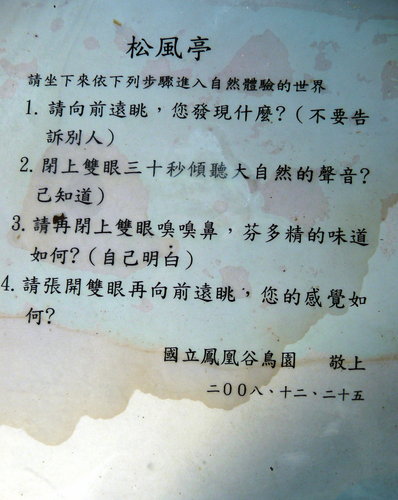 松風亭
請坐下來依下列步驟進入自然體驗的世界
1. 請向前遠眺，您發現什麼?（不要告
訴別人）
2. 閉上雙眼三十秒傾聽大自然的聲音?
己知道）
3. 請再閉上雙眼嗅嗅鼻，芬多精的味道
如何?（自己明白）
4. 請張開雙眼再向前遠眺，您的感覺如
何?
國立鳳凰谷鳥園　敬上
二00八、十二、二十五